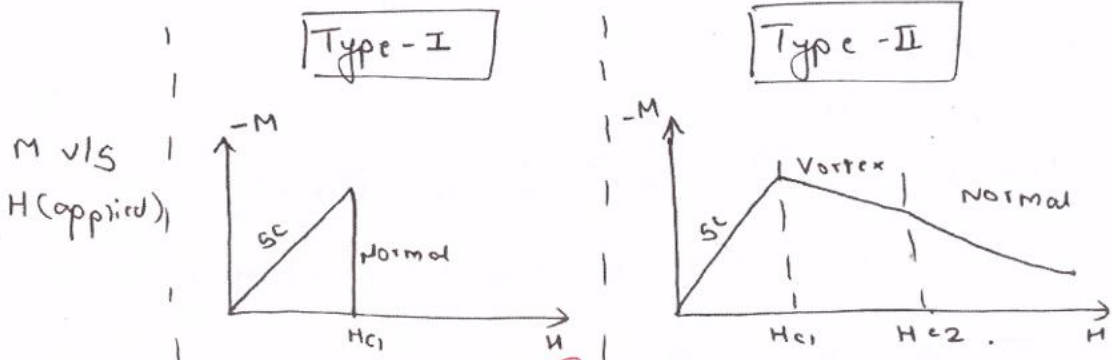 Type - I
Type - II
M v/s
H (applied)
-M
SC
Normal
Hc1
H
-M
SC
Vortex
Normal
Hc1
Hc2 .
H